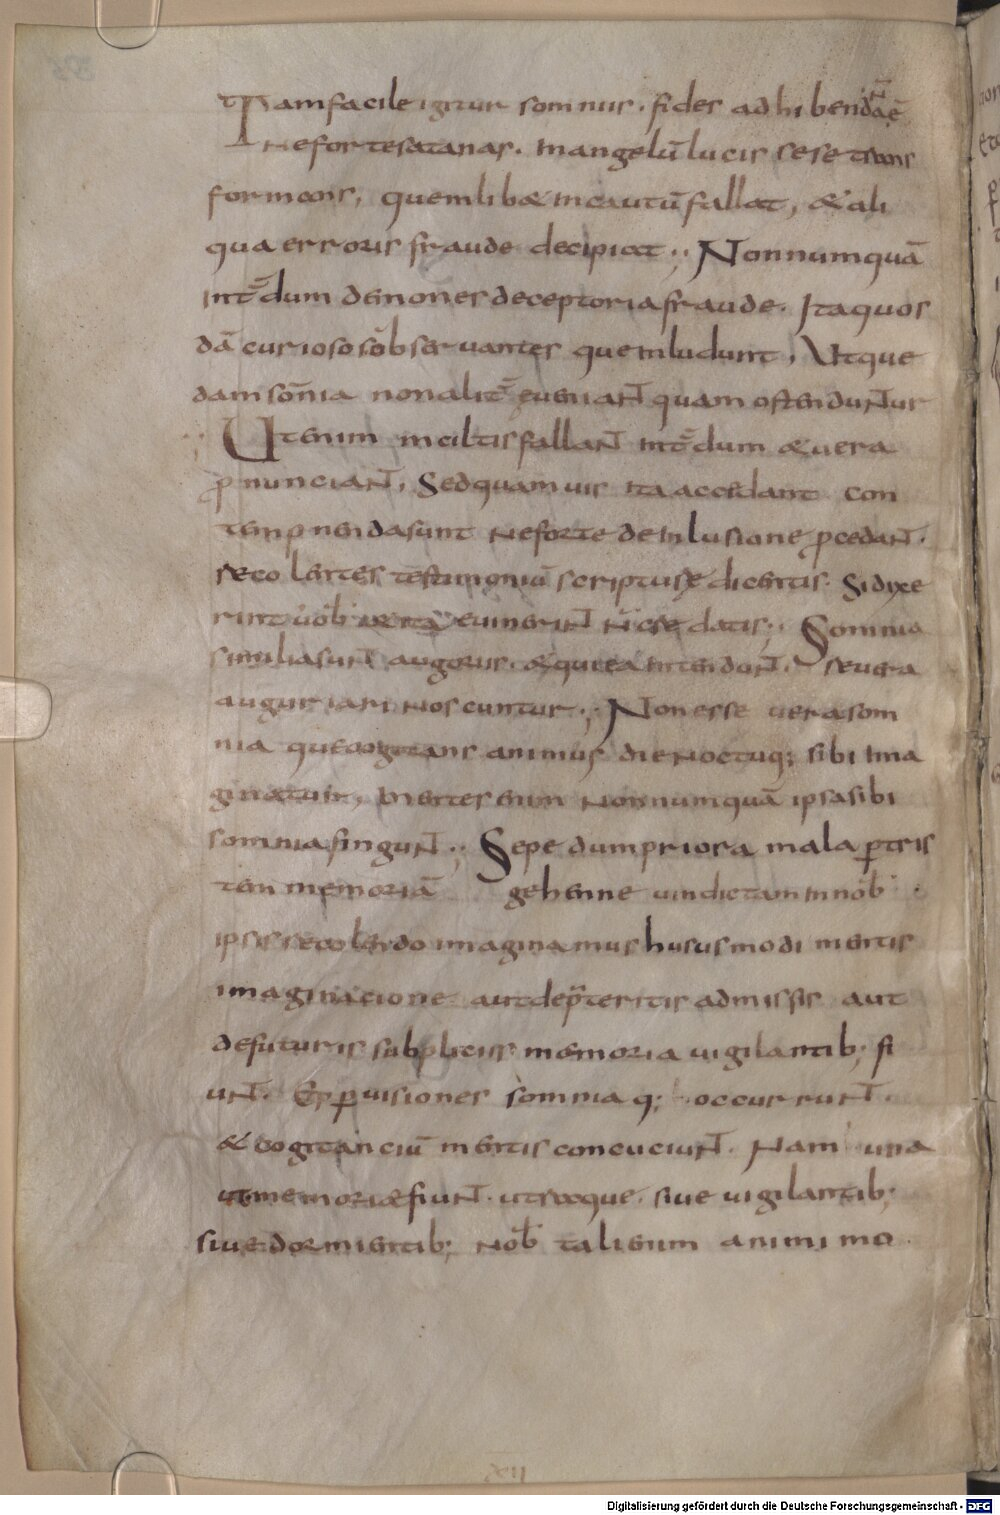 Tam facile igitur somnus. fides adhibenda ñ ē
Ne forte satanas. in angelū lucis sese trans
formans, quemlib& incautū fallat, & ali
qua erroris fraude decipiat;. Nonnumquā
int̄dum demones deceptoria fraude. Ita quos
dā curiosos obseruantes que inludunt, Ut que
dam somnia non alit̄ eueniant quam ostenduntur
Ut enim in ciltis fallant int̄dum & uera
pnunciant, Sed quamuis ita accidant con
tempnenda sunt ne forte de inlusione pcedant.
recolentes testimoniū scripture dicentis. Si dixe
rint uob euenerint credatis;. Somnia
similia sunt auguriis. & qui ea intendunt. re uera
auguriari noscuntur;. Non esse uera som
nia que cogitans animus die noctuq; sibi ima
ginatur, Mentes enim nonnumquā ipsa sibi
somnia fingunt;. Sepe dum priora mala ptris
ten memoriā gehenne uindictam in nob
ipsis recolendo imaginamus huiusmodi mentis
imaginacione aut de pteritis admissis aut
de futuris subpliciis memoria uigilantib; fi
unt. Ep p uisiones somnia q; occurrunt.
& cogitanciū mentis concuciunt. Nam una
ut memoriæ fiunt. utraque. siue uigilantib;
siue dormientib; nob tali enim animi mo
Digitalisierung gefördert durch die Deutsche Forschungsgemeinschaft - DFG